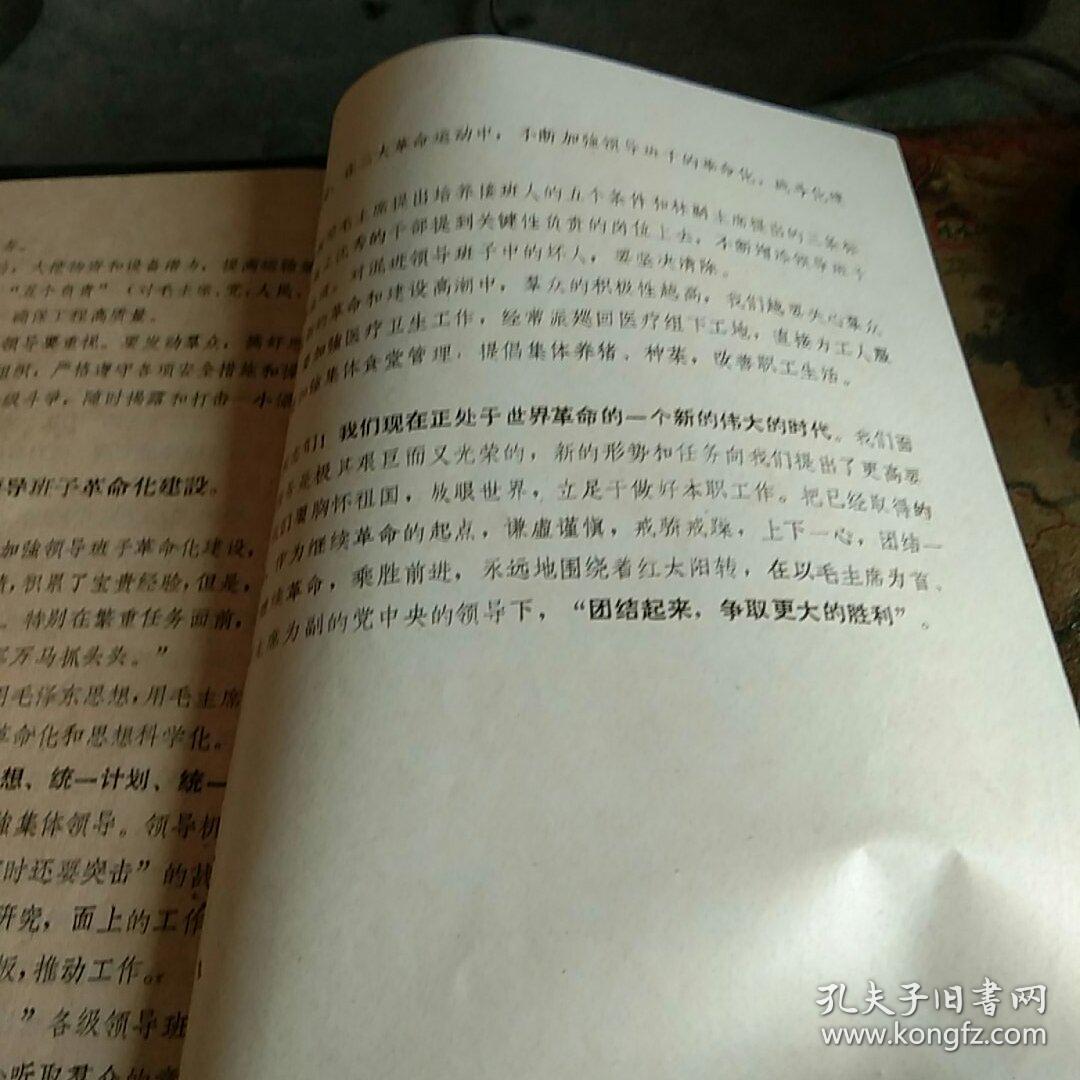 务。
，大使物资和设备潜力，提高运输
“五个负责”（对毛主席、党、人民、
确保工程高质量。
领导要重视。要发动群众，搞好
组织，严格遵守各项安全措施和
级斗争，随时揭露和打击一小撮
导班子革命化建设。
加強领导班子革命化建设，
积累了宝贵经验，但是，
。特别在繁重任务面前，
军万马抓头头。”
用毛泽东思想，用毛主席
革命化和思想科学化。
想、统一计划、统一
強集体领导。领导机
时还要突击”的战
研究，面上的工作
板，推动工作。
”各级领导班
听取群众的意
在三大革命运动中，不断加強领导班子的革命化，战斗化建
毛主席提出培养接班人的五个条件和林副主席提出的三条标
优秀的干部提到关键性负责的岗位上去，不断纯洁领导班子
对混进领导班子中的坏人，要坚决清除。
的革命和建设高潮中，群众的积极性越高，我们越要关心群众
要加強医疗卫生工作，经常派巡回医疗组下工地，直接为工人服
加強集体食堂管理，提倡集体养猪、种菜，改善职工生活。
们！我们现在正处于世界革命的一个新的伟大的时代。我们面
务是极其艰巨而又光荣的，新的形势和任务向我们提出了更高要
我们要胸怀祖国，放眼世界，立足于做好本职工作。把已经取得的
作为继续革命的起点，谦虚谨慎，戒骄戒躁，上下一心，团结一
继续革命，乘胜前进，永远地围绕着红太阳转，在以毛主席为首、
主席为副的党中央的领导下，“团结起来，争取更大的胜利”。
孔夫子旧書网
www.kongfz.com